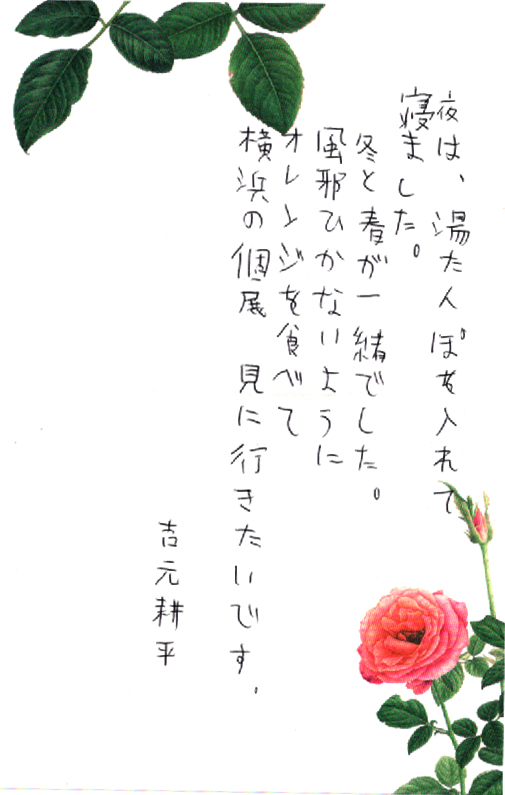 夜は、湯たんぽを入れて
寝ました。
冬と春が一緒でした。
風邪ひかないように
オレンジを食べて
横浜の個展 見に行きたいです.
吉元耕平